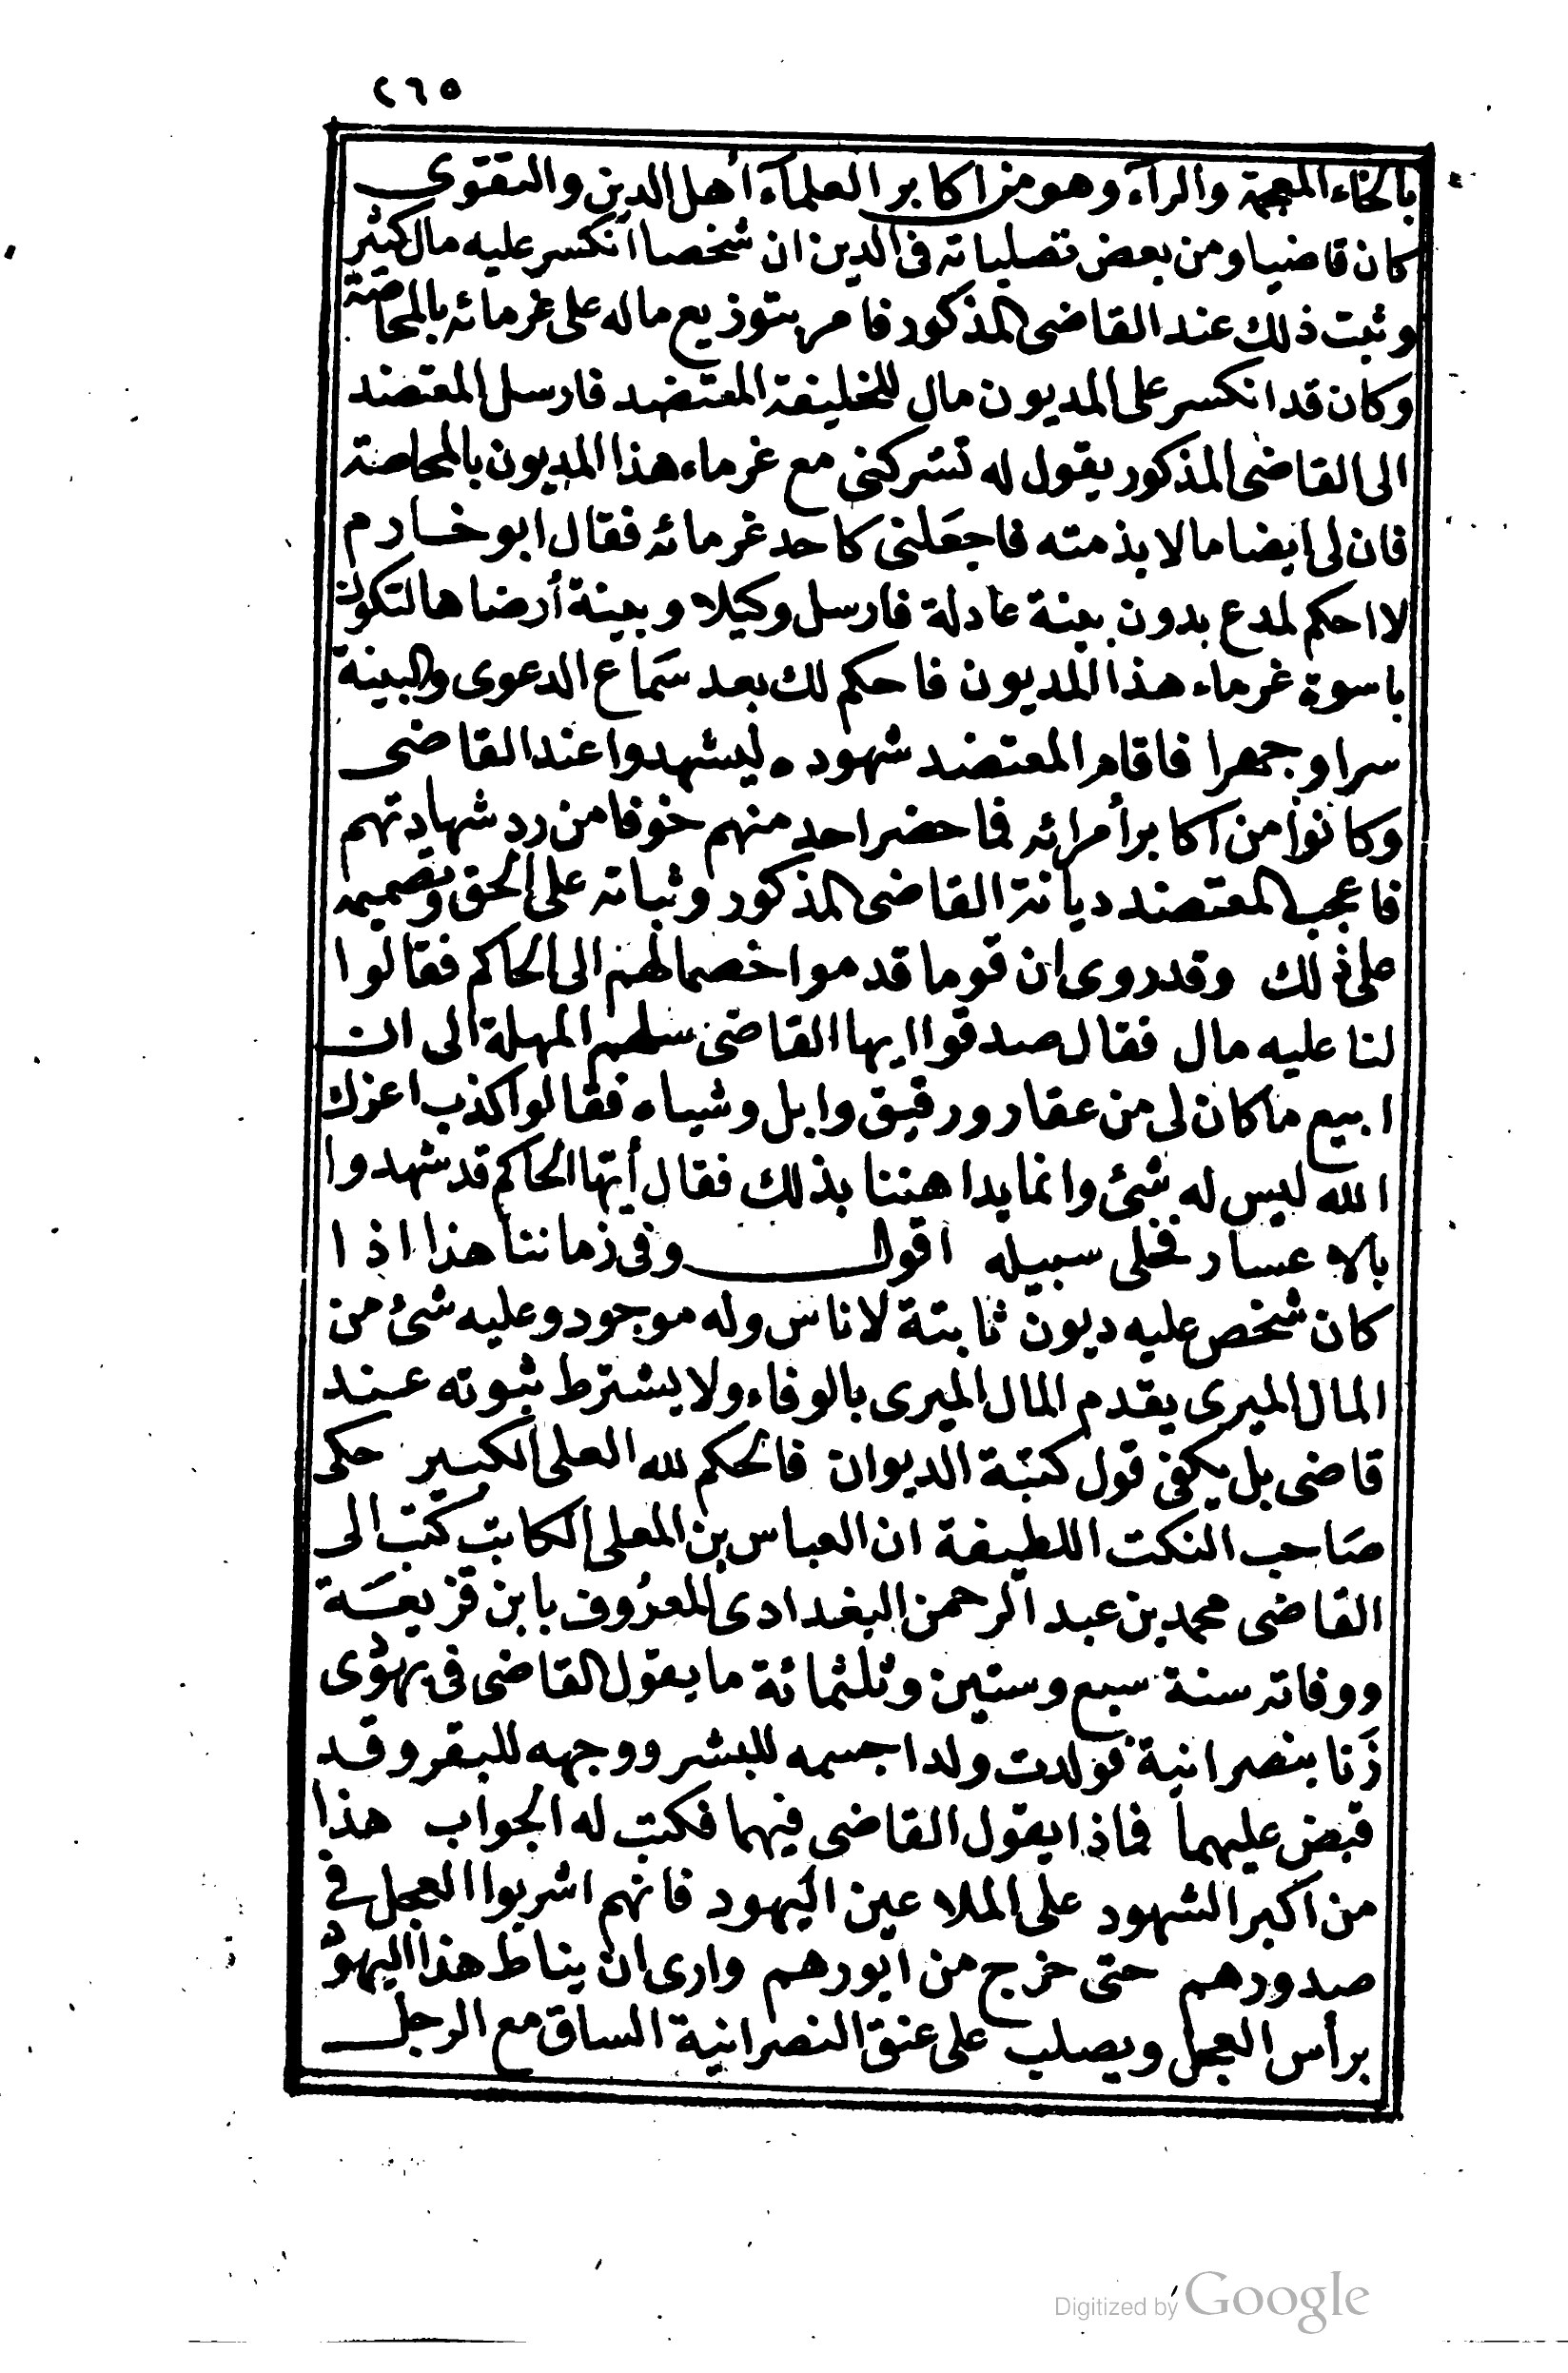 ٢٦٥
بالخاء المعجمة والرآء وهو من اكابر العلمآء أهل الدين والتقوى
كان قاضيا ومن بعض تصلباته فى الدين ان شخصا انكسر عليه مال كثير
وثبت ذلك عند القاضى المذكور فامر بتوزيع ماله على غرمائه بالمحاصة
وكان قد انكسر على المديون مال للخليفة المعتضد فارسل المعتضد
الى القاضى المذكور يقول له تشركنى مع غرماء هذا المديون بالمحاصة
فان لى ايضا مالا بذمته فاجعلنى كاحد غرمائه فقال ابو خادم
لا احكم لمدع بدون بينة عادلة فارسل وكيلا وبينة أرضاها لتكون
باسوة غرماء هذا المديون فاحكم لك بعد سماع الدعوى والبينة
سرا وجهرا فاقام المعتضد شهوده ليشهدوا عند القاضى
وكانوا من اكابر أمرائه فما حضر احد منهم خوفا من رد شهادتهم
فاعجب المعتضد ديانة القاضى المذكور وثباته على الحق وتصميمه
على ذلك وقد روى ان قوما قدموا خصما لهم الى الحاكم فقالوا
لنا عليه مال فقال صدقوا ايها القاضى سلهم المهلة الى ان
ابيع ما كان لى من عقار ورقيق وابل وشياه فقالوا كذب اعزك
الله ليس له شئ وانما يداهننا بذلك فقال أيها الحاكم قد شهدوا
بالاعسار فخلى سبيله اقول وفى زماننا هذا اذا
كان شخص عليه ديون ثابتة لاناس وله موجود وعليه شئ من
المال الميرى يقدم المال الميرى بالوفاء ولا يشترط ثبوته عند
قاضى بل يكفى قول كتبة الديوان فالحكم لله العلى الكبير حكى
صاحب النكت اللطيفة ان العباس بن المعلى الكاتب كتب الى
القاضى محمد بن عبد الرحمن البغدادى المعروف بابن قزيعة
ووفاته سنة سبع وستين وثلثمائة ما يقول القاضى فى يهودى
زنا بنصرانية فولدت ولدا جسمه للبشر ووجهه للبقر وقد
قبض عليهما فماذا يقول القاضى فيهما فكتب له الجواب هذا
من اكبر الشهود على الملاعين اليهود فانهم اشربوا العجل فى
صدورهم حتى خرج من ايورهم وارى ان يناط هذا اليهودى
برأس العجل ويصلب على عنق النصرانية الساق مع الرجل
Digitized by Google